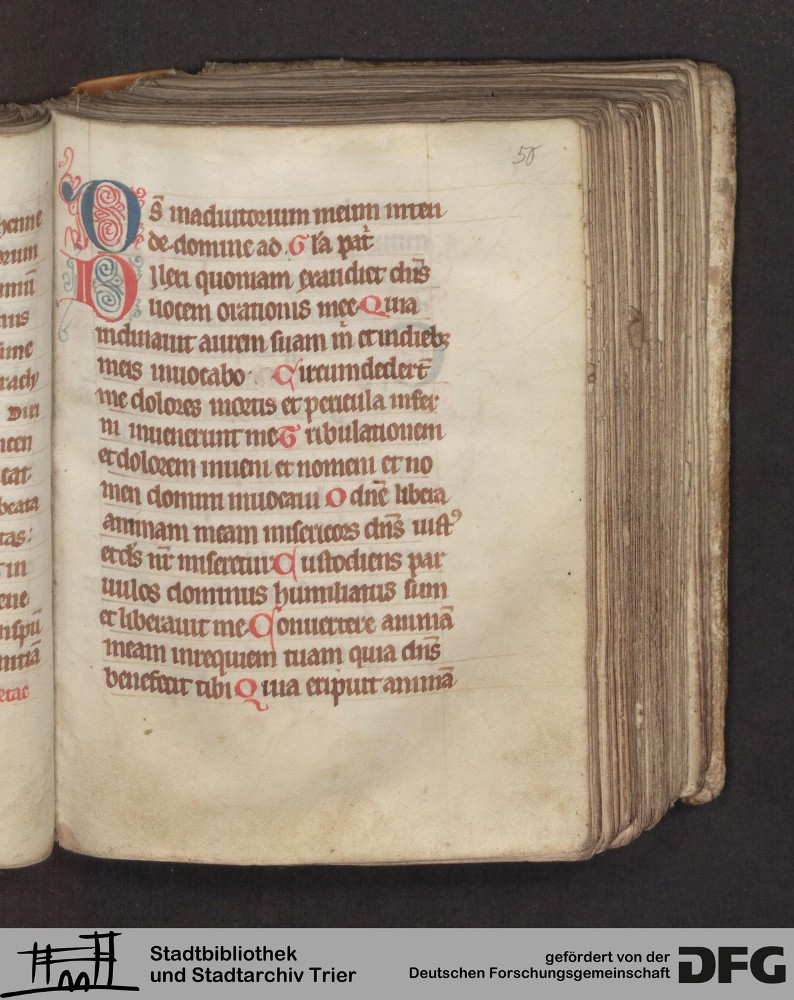 56
Ds̄ inadiutorium meum inten
de. domine ad. Gl'a pat̄
Dilexi quoniam exaudiet dn̄s
uocem orationis mee Quia
inclinauit aurem suam m̄ et indieb;
meis inuocabo. Circumdedert̄
me dolores mortis et pericula infer
ni inuenerunt me Tribulationem
et dolorem inueni et nomeni et no
men domini inuocaui O dn̄e libera
animam meam misericors dn̄s iustꝯ
et ds̄ nr̄ miseretur Custodiens par
uulos dominus humiliatus sum
et liberauit me Conuertere animā
meam inrequiem tuam quia dn̄s
benefecit tibi Quia eripuit animā
henne
orum
nus
sime
rach
icen
tat
beata
tas:
ene
etae
Stadtbibliothek
und Stadtarchiv Trier
gefördert von der
Deutschen Forschungsgemeinschaft
DFG